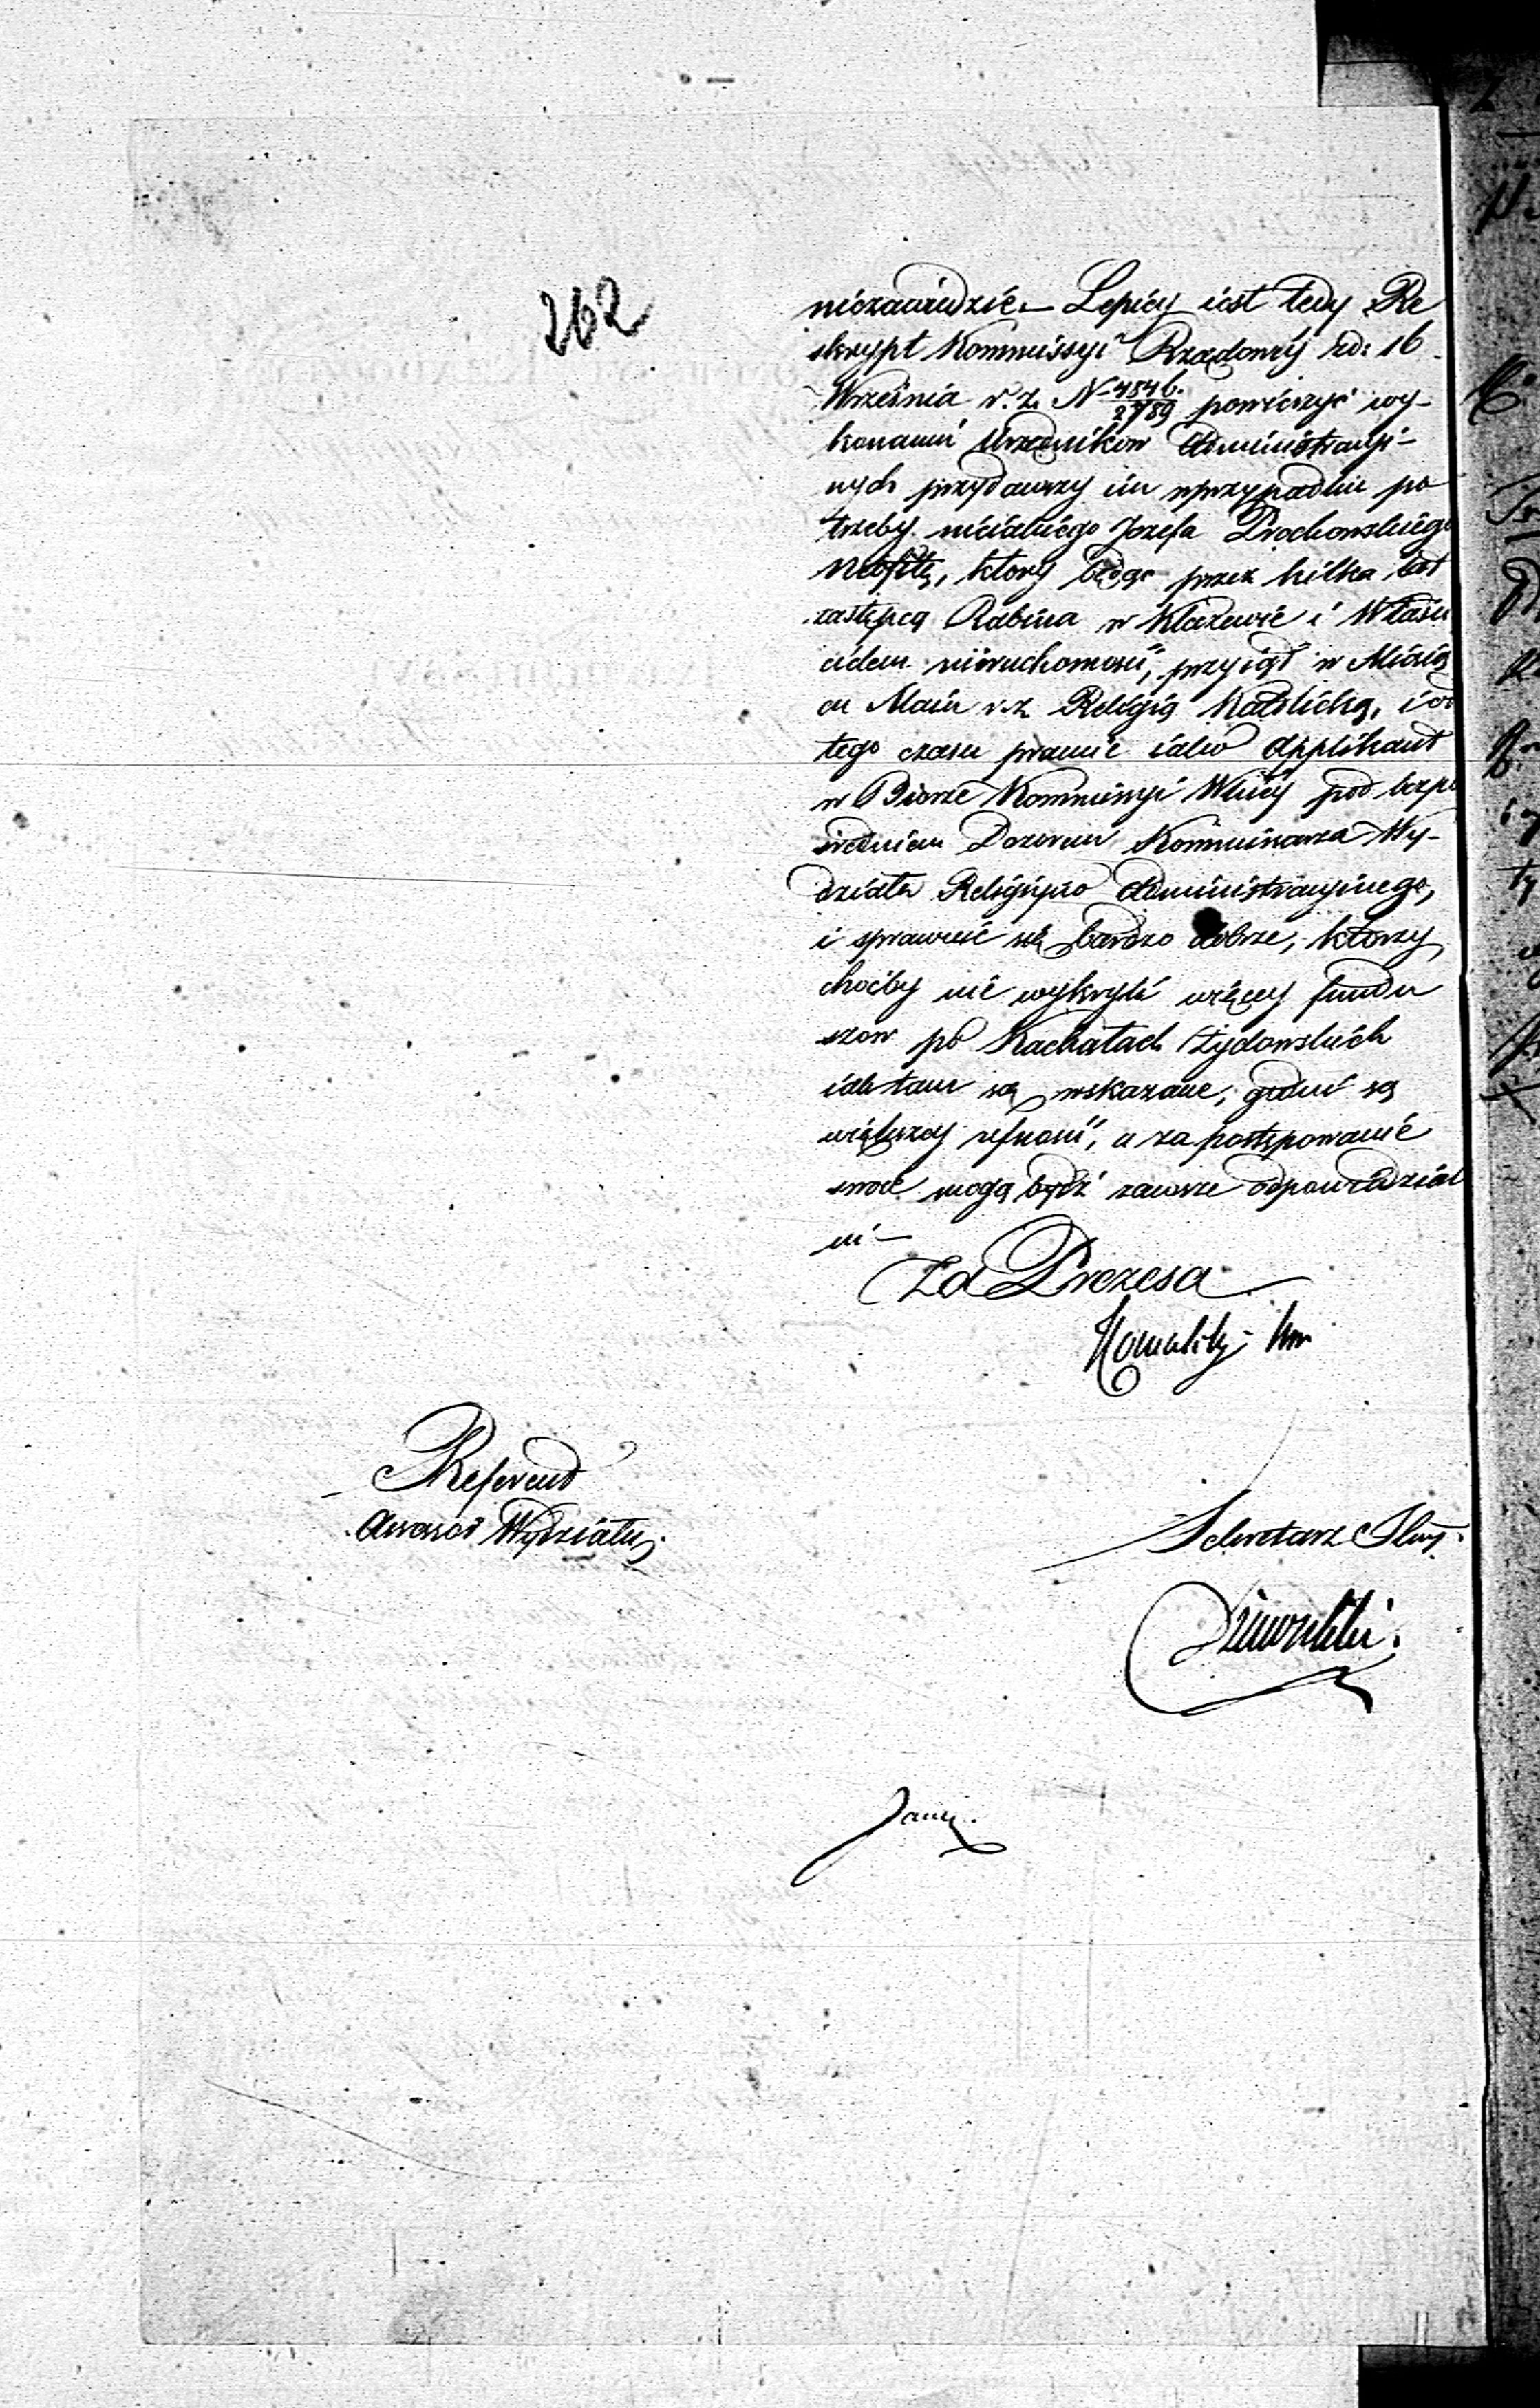 262
niezawiedzie – Lepiey iest tedy Re
skrypt Kommissyi Rządowéy z d: 16
Września r. z. N 4846/2789 powierzyć wy-
konaniu Urzędników Administracyi-
nych przydawszy im w przypadku po
trzeby nieiakiego Jozefa Prochowskiego
Neofitę, ktory będąc przez kilka lat
zastępcą Rabina w Klczewie i Właści
cielem nieruchomości, przyiął w Miesią
cu Maiu r. z. Religią Katolicką, i od
tego czasu pracuie iako Applikant
w Biorze Kommissyi Wttwey pod bezpo
średniem Dozorem Kommissarza Wy-
działu Religiyno Administracyinego,
i sprawuie się bardzo dobrze, ktorzy
choćby nie wykryli więcey fundu
szow po Kachałach Żydowskich
iak tam są wskazane, godni są
większey ufności, a za postępowanie
swoie mogą bydź zawsze odpowiedzial
ni –
Za Prezesa
Referend
Assessor Wydziału
Sekretarz Jlny.